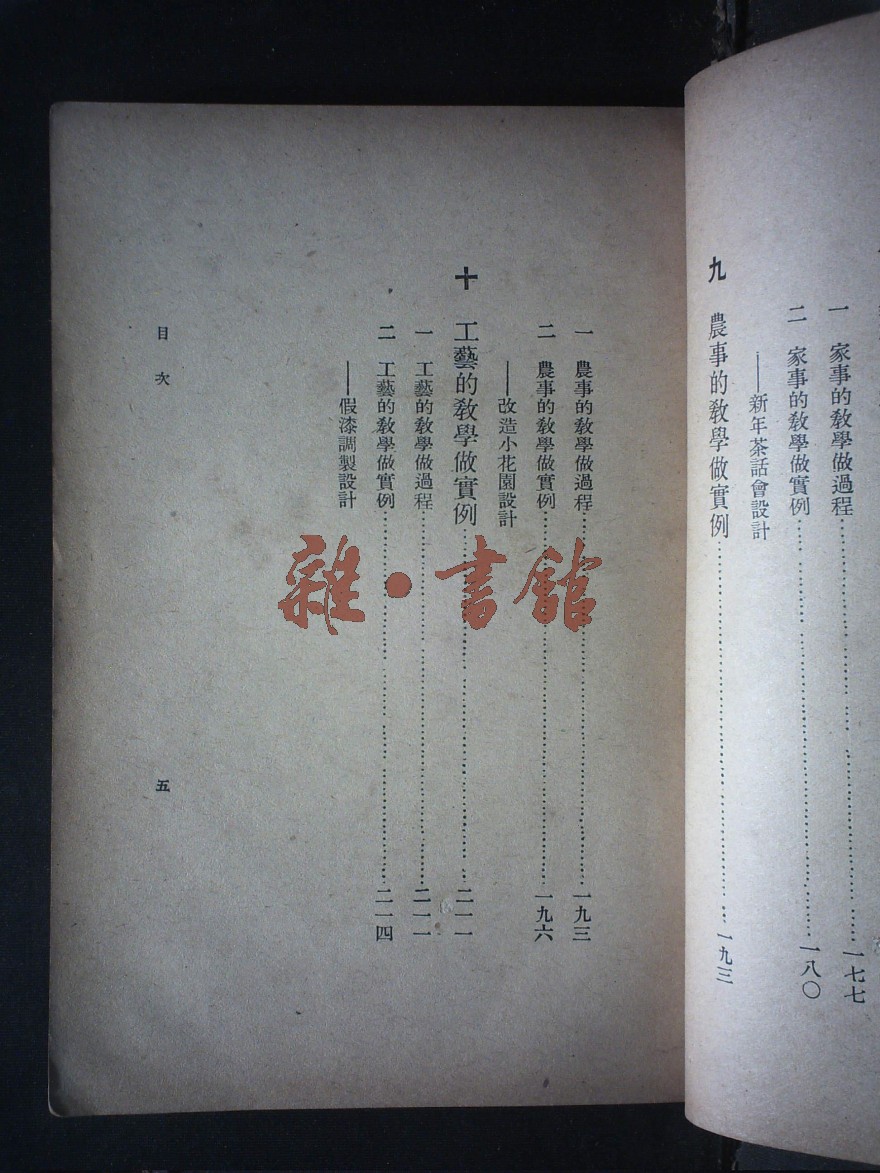 一　家事的教學做過程……一七七
二　家事的教學做實例……一八〇
——新年茶話會設計
九　農事的教學做實例……一九三
一　農事的教學做過程……一九三
二　農事的教學做實例……一九六
——改造小花園設計
十　工藝的教學做實例……二一一
一　工藝的教學做過程……二一一
二　工藝的教學做實例……二一四
——假漆調製設計
目次
五
雜·書館